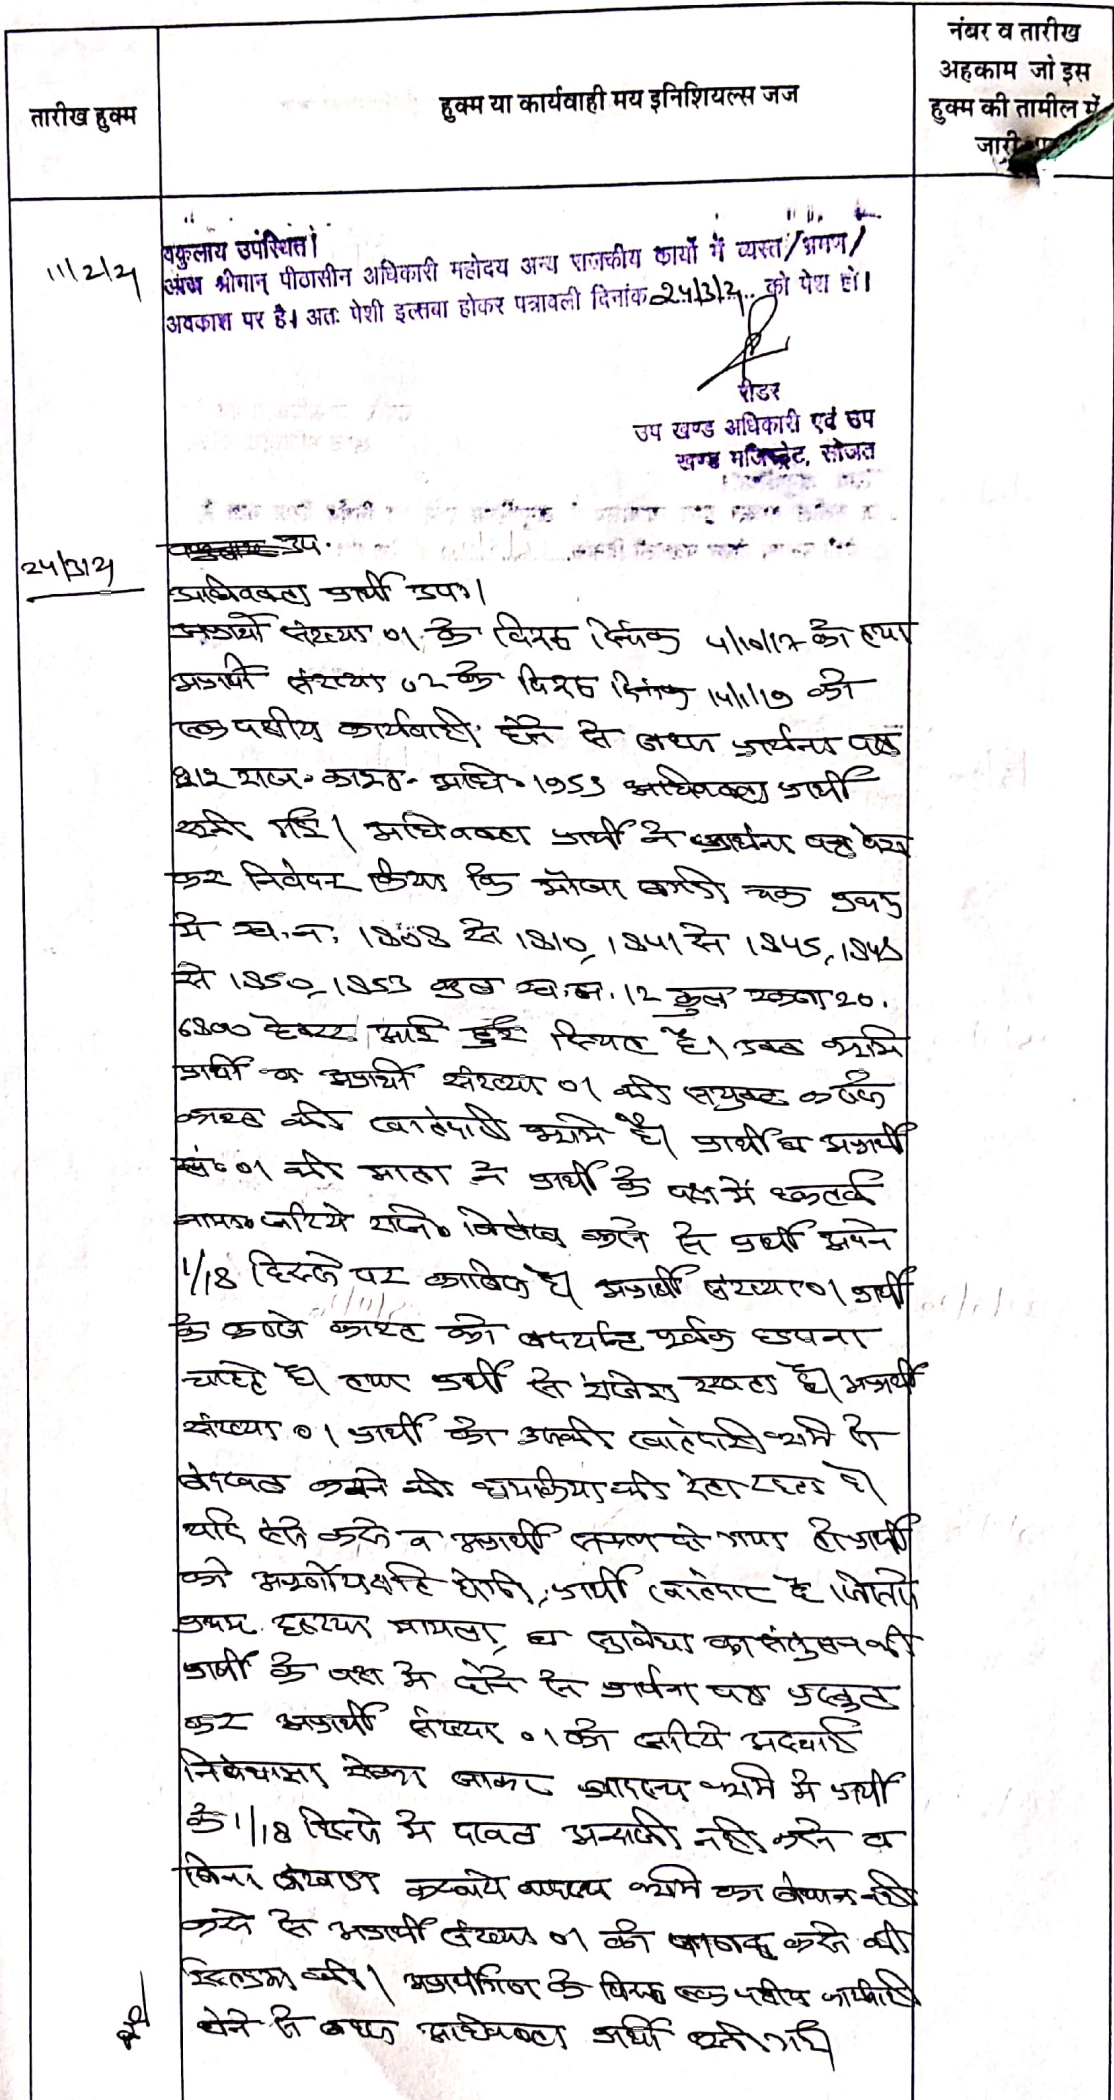 तारीख हुक्म
हुक्म या कार्यवाही मय इनिशियल्स जज
नंबर व तारीख
अहकाम जो इस
हुक्म की तामील में
जारी
11/2/21
वकुलाय उपस्थित।
आज श्रीमान् पीठासीन अधिकारी महोदय अन्य राजकीय कार्यो में व्यस्त/भ्रमण/
अवकाश पर है। अतः पेशी इल्तवा होकर पत्रावली दिनांक 24/3/21 को पेश हो।
रीडर
उप खण्ड अधिकारी एवं उप
खण्ड मजिस्ट्रेट, सोजत
24/3/21
उप.
अधिवक्ता प्रार्थी उप०।
अप्रार्थी संख्या 01 के विरुद्ध दिनांक 4/10/17 को तथा
अप्रार्थी संख्या 02 के विरुद्ध दिनांक 14/1/19 को
एक पक्षीय कार्यवाही होने से बहस प्रार्थना पत्र
212 राज. काश्त. अधि. 1955 अधिवक्ता प्रार्थी
सुनी गई। अधिवक्ता प्रार्थी ने प्रार्थना पत्र पेश
कर निवेदन किया कि मौजा बगडी चक प्रथम
में ख.न. 1808 से 1810, 1841 से 1845, 1848
से 1850, 1853 कुल ख.न. 12 कुल रकबा 20.
6800 हैक्टर आई हुई स्थित है। उक्त भूमि
प्रार्थी व अप्रार्थी संख्या 01 की संयुक्त कब्जे
काश्त की खातेदारी भूमि है। प्रार्थी व अप्रार्थी
सं० 01 की माता ने प्रार्थी के पक्ष में हकतर्क
नामा जरिये रजि० विलेख करने से प्रार्थी अपने
1/18 हिस्से पर काबिज है। अप्रार्थी संख्या 01 प्रार्थी
के कब्जे काश्त को पूर्वक हडपना
चाहते है। तथा प्रार्थी से रंजिश रखता है। अप्रार्थी
संख्या 01 प्रार्थी को उसकी खातेदारी भूमि से
बेदखल करने की धमकिया भी देता रहता है।
यदि ऐसे करने व अप्रार्थी सफल हो गया तो प्रार्थी
को अपूर्णीय क्षति होगी, प्रार्थी खातेदार है जिससे
प्रथम दृष्टया मामला, व सुविधा का संतुलन भी
प्रार्थी के पक्ष में होने से प्रार्थना पत्र प्रस्तुत
कर अप्रार्थी संख्या 01 को जरिये अस्थाई
निषेधाज्ञा रोका जाकर वादग्रस्त भूमि में प्रार्थी
के 1/18 हिस्से में दखल अन्दाजी नही करने व
बिना बंटवारा करवाये वादग्रस्त भूमि का बेचान नही
करने से अप्रार्थी संख्या 01 को पाबन्द करने की
इस्तदुआ की। अप्रार्थीगण के विरुद्ध एक पक्षीय कार्यवाही
होने से बहस अधिवक्ता प्रार्थी सुनी गई।